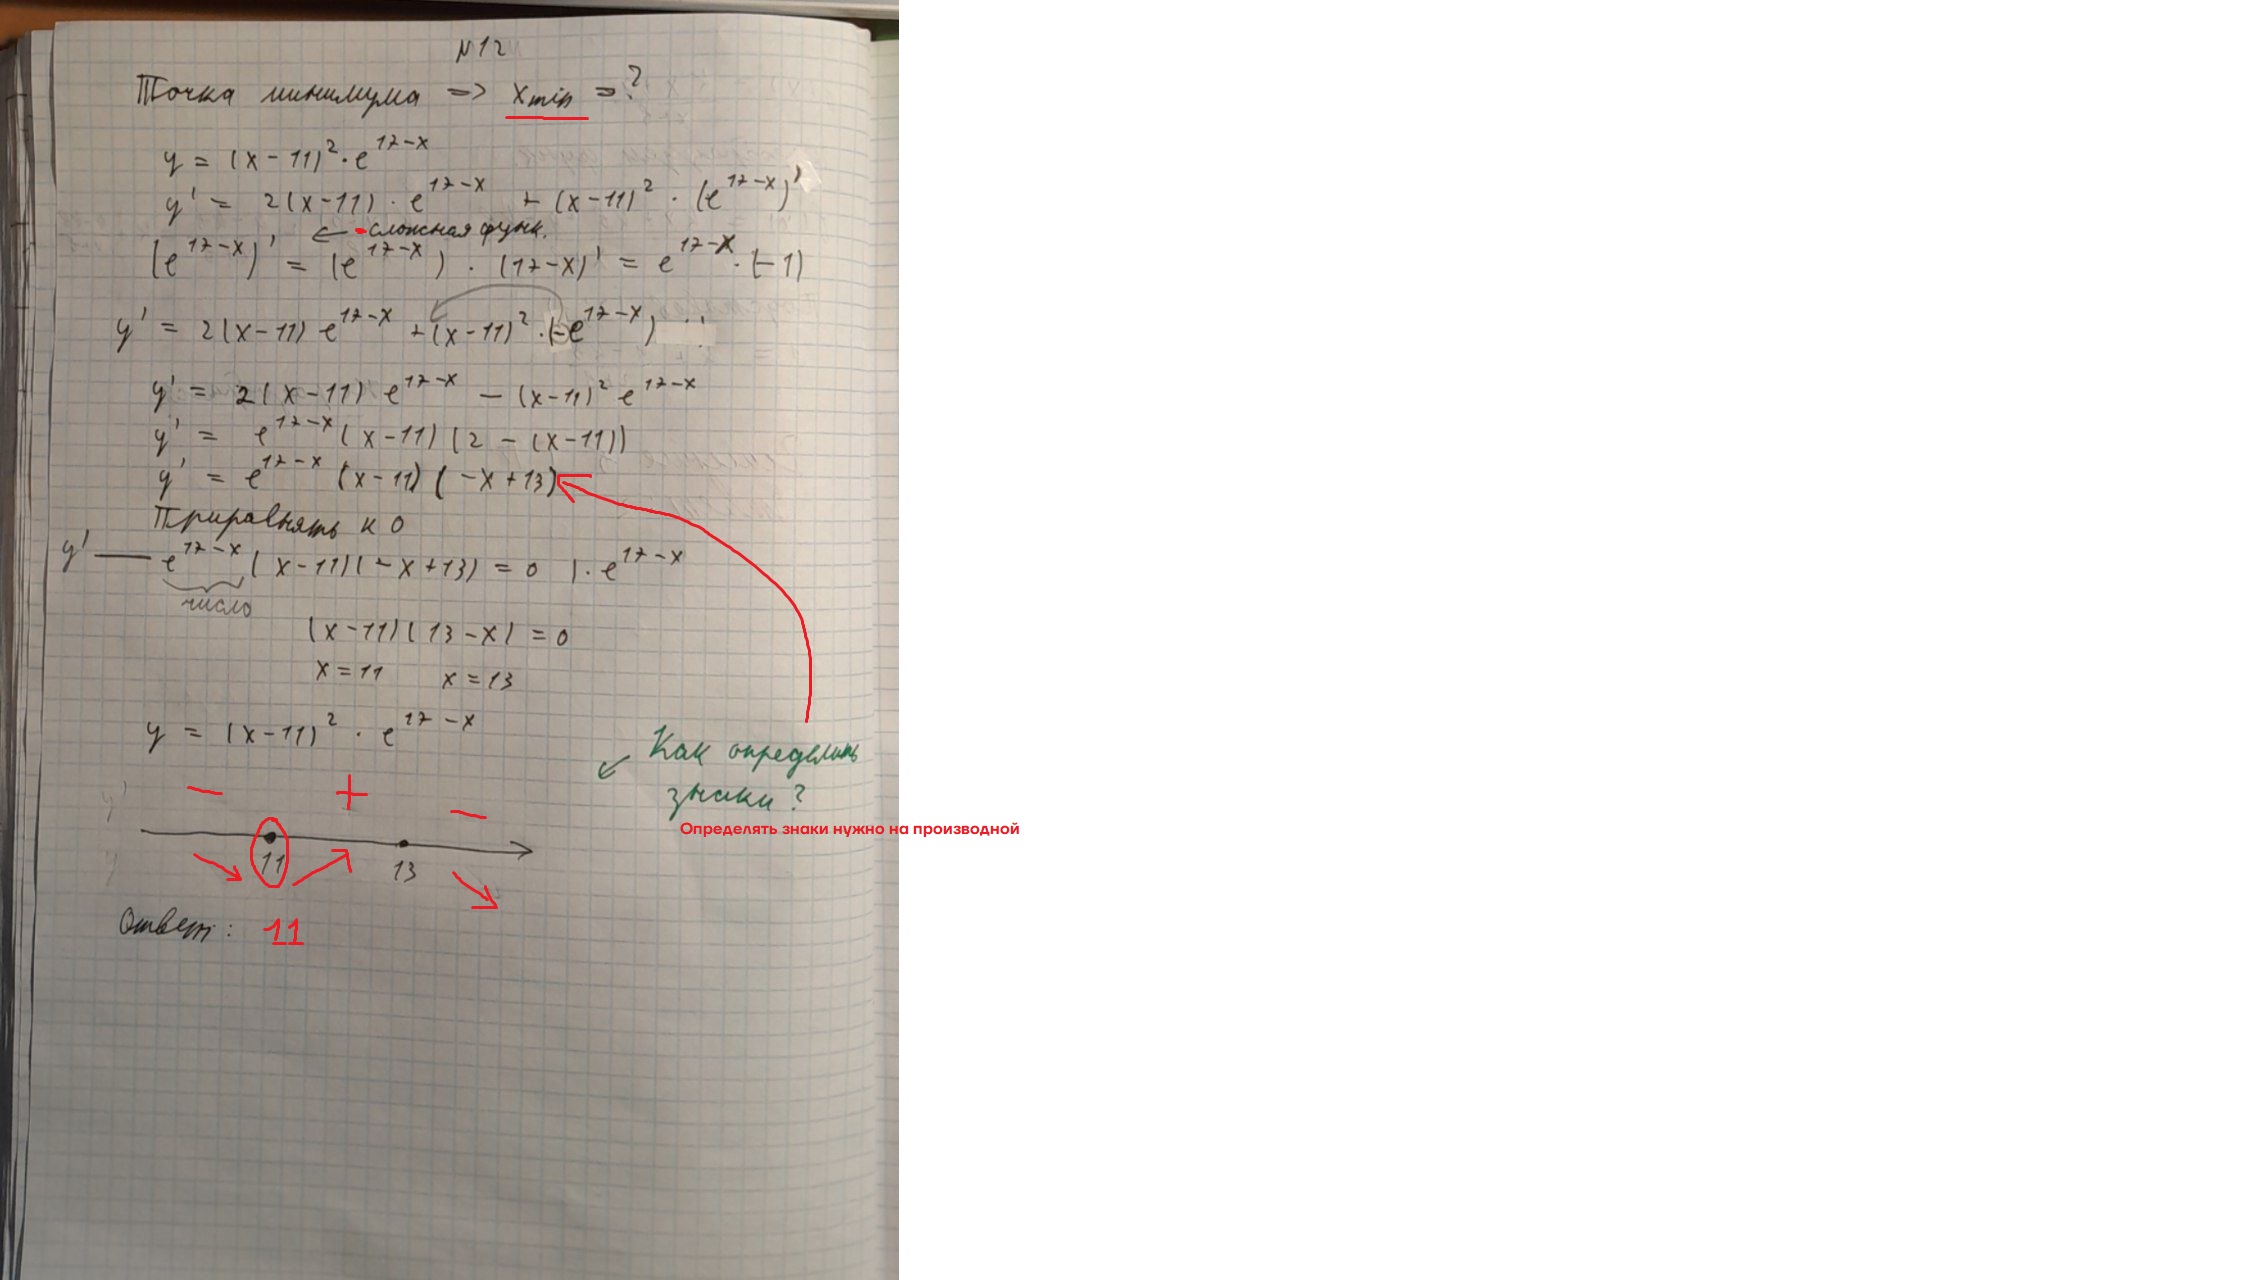 N12
Точка минимума => xmin = ?
y = (x-11)² · e^(17-x)
y' = 2(x-11) · e^(17-x) + (x-11)² · (e^(17-x))'
← - сложная функ.
(e^(17-x))' = (e^(17-x)) · (17-x)' = e^(17-x) · (-1)
y' = 2(x-11) e^(17-x) + (x-11)² · (-e^(17-x))
y' = 2(x-11) e^(17-x) - (x-11)² e^(17-x)
y' = e^(17-x) (x-11) (2 - (x-11))
y' = e^(17-x) (x-11) (-x+13)
Приравнять к 0
y' — e^(17-x) (x-11)(-x+13) = 0 | · e^(17-x)
число
(x-11)(13-x) = 0
x = 11 x = 13
y = (x-11)² · e^(17-x)
Как определить
знаки?
Определять знаки нужно на производной
y' - + -
11 13
y
Ответ: 11